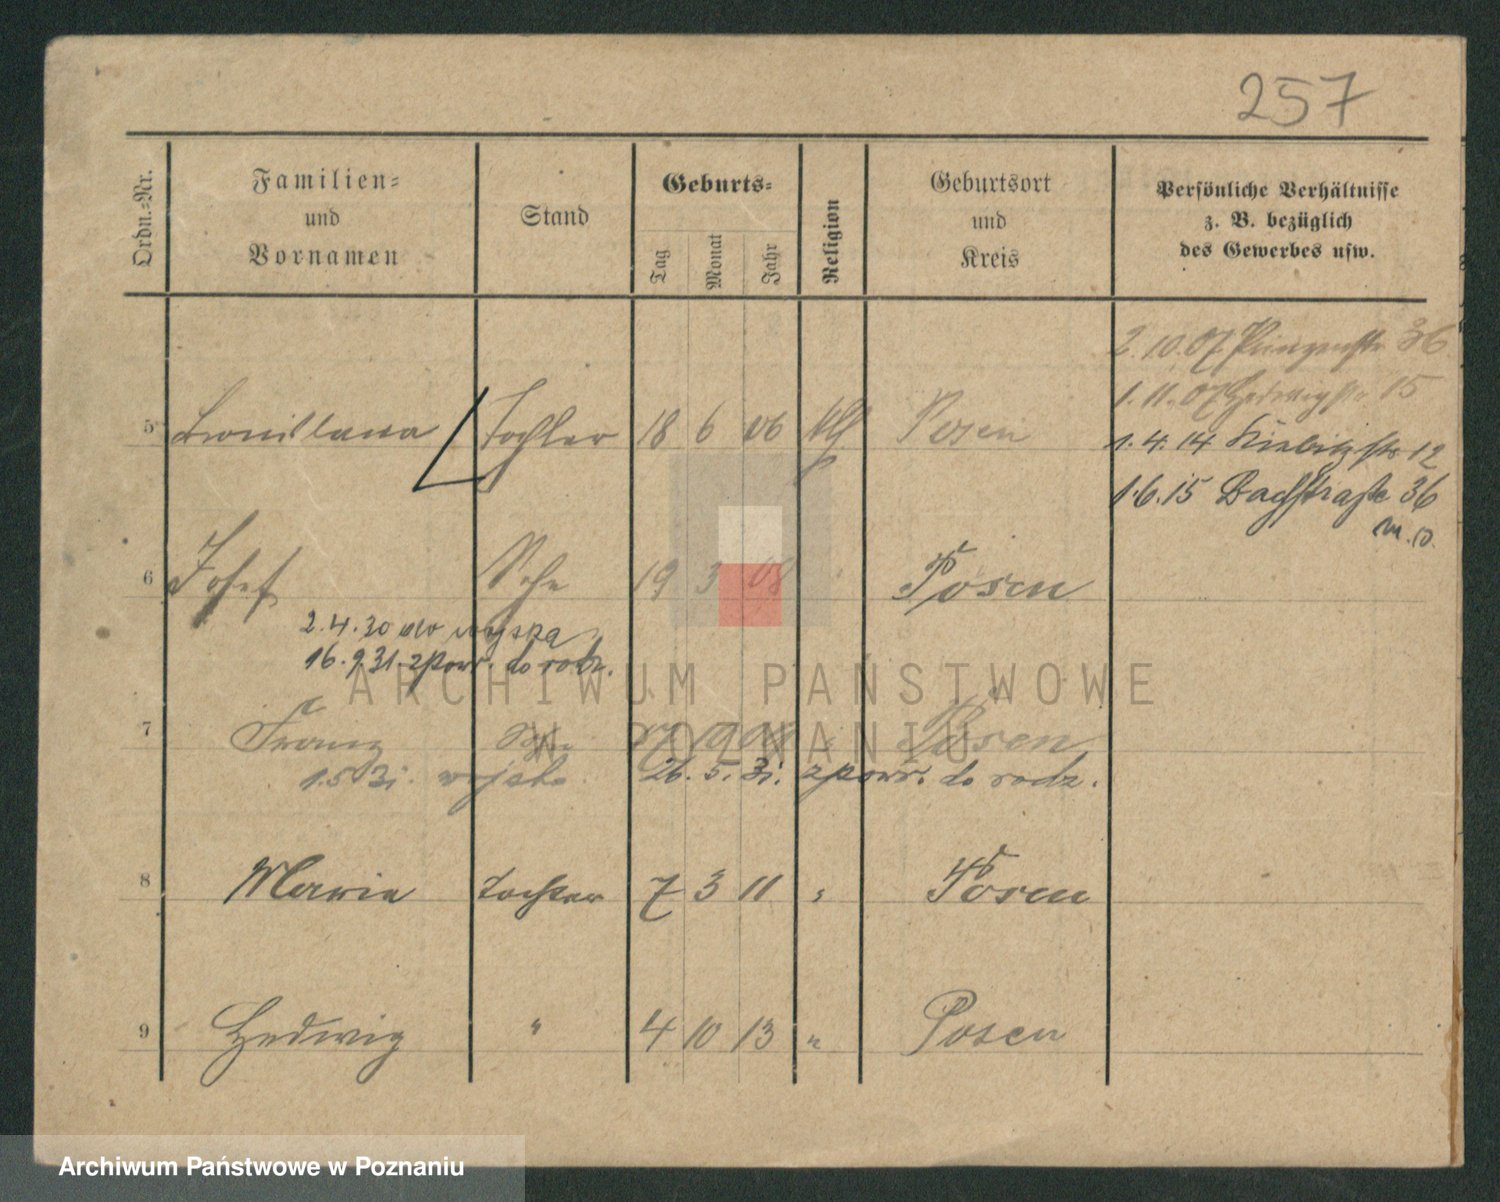 257
Ordn.-Nr. Familien- und Vornamen Stand Geburts- Tag Monat Jahr Religion Geburtsort und Kreis Persönliche Verhältnisse z. B. bezüglich des Gewerbes usw.
2.10.07 36
1.11.07 Hedwigstr 15
5 Tochter 18 6 06 kth Posen
1.4.14 12
1.6.15 Bachstraße 36
6 Josef Sohn 19 3 08 Posen
2.4.30 do wojska
16.9.31. zpowr. do rodz.
7 Franz Posen
1.5.31. wojsko 26.5.31. zpowr. do rodz.
8 Maria Tochter 7 3 11 " Posen
9 Hedwig " 4 10 13 " Posen
ARCHIWUM PAŃSTWOWE
W POZNANIU
Archiwum Państwowe w Poznaniu